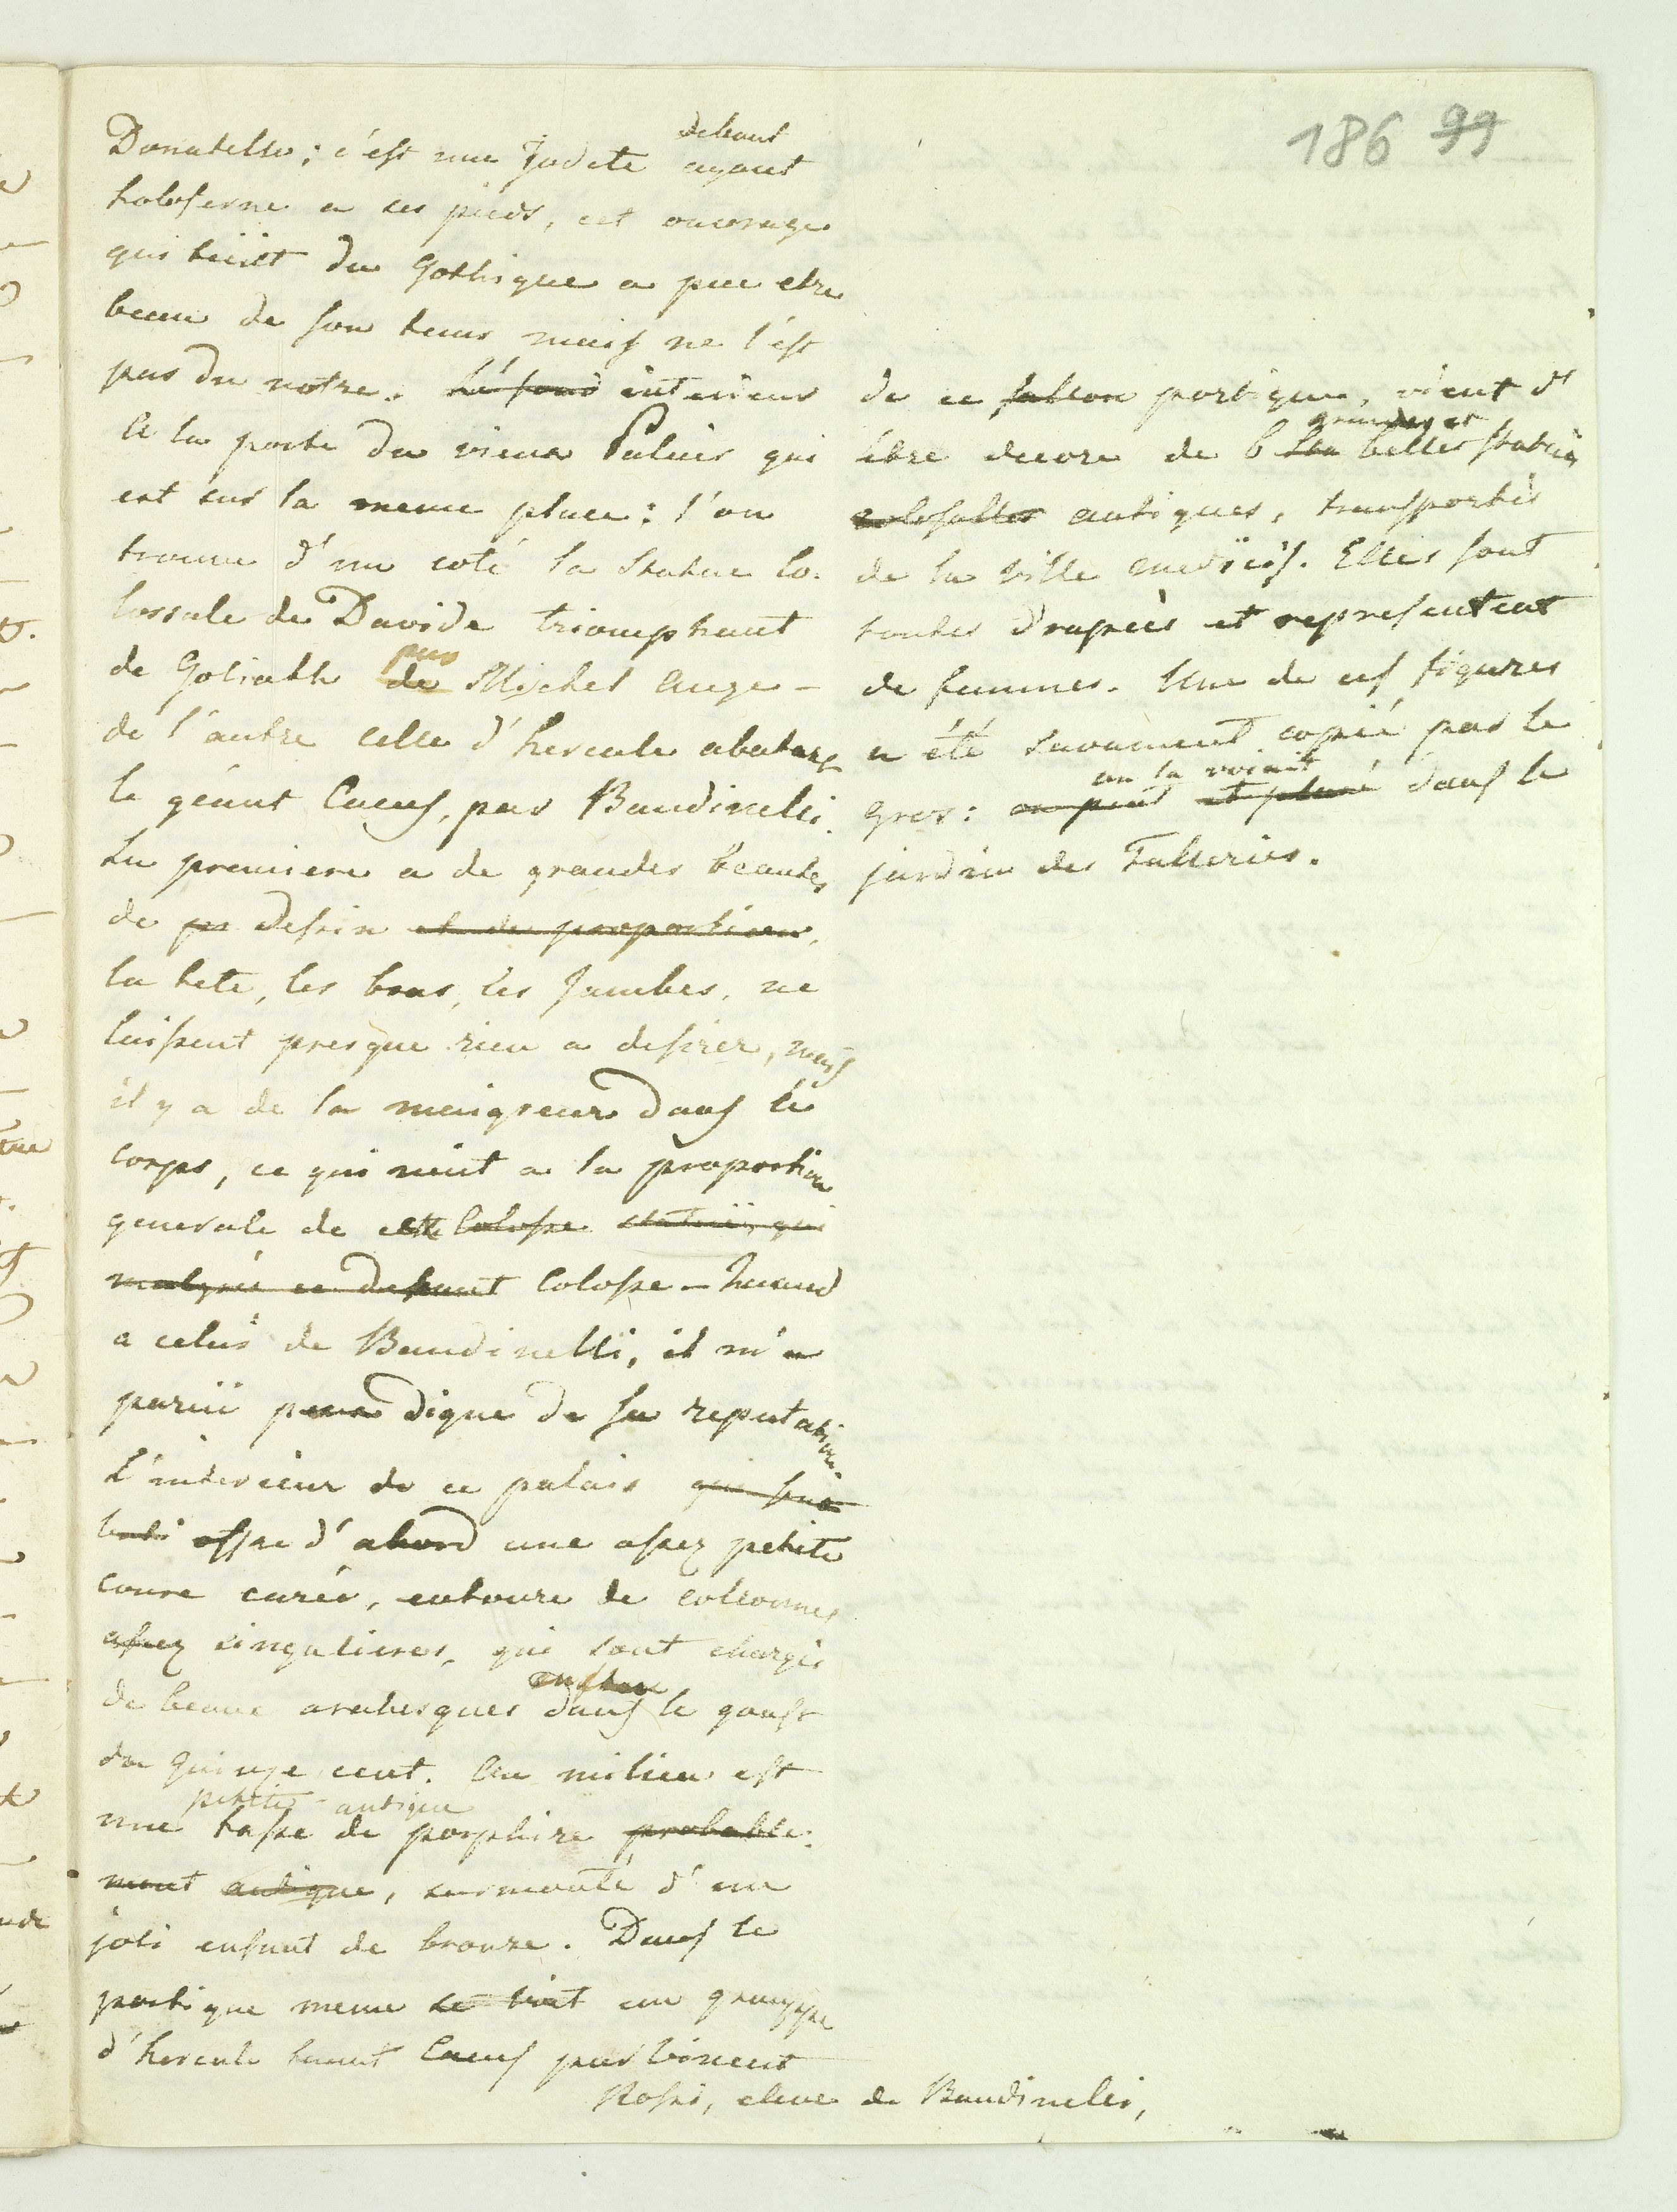 186 99
debout
Donatello; c'est une Judite ayant
holoferne a ses pieds, cet ouvrage
qui tüint du Gothique a pue etre
beau de son tems mais ne l'est
pas du notre. interieur
A la porte du vieux Palais qui
est sur la meme place: l'on
trouve d'un coté la Statue Co-
lossale de Davide triomphant
par
de Goliathe de Michel Ange -
de l'autre celle d'hercule abatant
le géant Cacus, par Bandinelli.
La premiere a de grandes beautes
de pr dessin et de proportions,
la tete, les bras, les Jambes, ne
laissent presque rien a desirer, mais
il y a de la maigreur dans le
corps, ce qui nuit a la proportion
generale de cette Colosse statüe, qui
malgré ce defaut Colosse - Quand
a celui de Bandinelli, il m'a
parüe peu digne de sa reputation.
L'interieur de ce palais qui fut
bati offre d'abord une assez petite
coure carée, entoure de collonnes
assez singulieres, qui sont chargés
en stuc
de beaux arabesques dans le goust
du quinze cent. Au milieu est
petite antique
une tasse de porphire probable-
ment antique, surmonté d'un
joli enfant de bronze. Dans le
portique meme se voit un grouppe
d'hercule tuant Cacus par Vincent
Rossi, eleve de Bandinelli,
de ce sallon portique, vient d'
grandes et
être decoré de 6 belles statües
colossalles antiques, transportés
de la ville medicis. Elles sont
toutes drapeés et representent
de femmes. Une de ces figures
a été savament copié par le
on la voiait
Gros: on peut dans le
jardin des Tulleries.